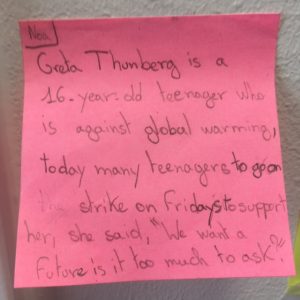 Noa
Greta Thunberg is a
16-years-old teenager who
is against global warming,
today many teenagers to go on
the strike on Fridays to support
her, she said, "We want a
future is it too much to ask?"